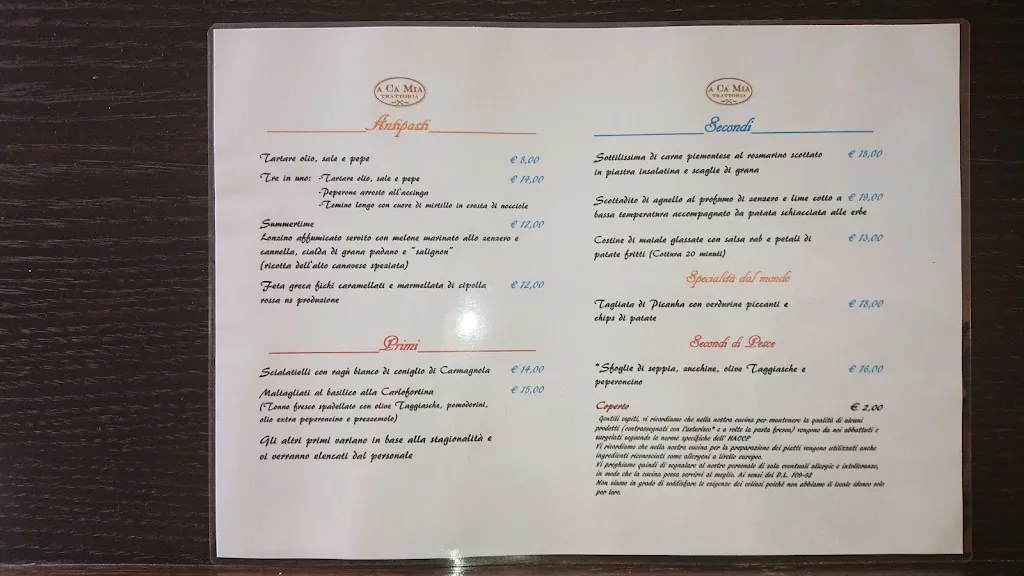 A CA' MIA
TRATTORIA
Antipasti
Tartare olio, sale e pepe € 8,00
Tre in uno: -Tartare olio, sale e pepe € 14,00
-Peperone arrosto all'acciuga
-Tomino longo con cuore di mirtillo in crosta di nocciole
Summertime € 12,00
Lonzino affumicato servito con melone marinato allo zenzero e
cannella, cialda di grana padano e "salignon"
(ricotta dell'alto canavese speziata)
Feta greca fichi caramellati e marmellata di cipolla € 12,00
rossa ns produzione
Primi
Scialatielli con ragù bianco di coniglio di Carmagnola € 14,00
Maltagliati al basilico alla Carlofortina € 15,00
(Tonno fresco spadellato con olive Taggiasche, pomodorini,
olio extra peperoncino e prezzemolo)
Gli altri primi variano in base alla stagionalità e
vi verranno elencati dal personale
A CA' MIA
TRATTORIA
Secondi
Sottilissima di carne piemontese al rosmarino scottato € 18,00
in piastra insalatina e scaglie di grana
Scottadito di agnello al profumo di zenzero e lime cotto a € 19,00
bassa temperatura accompagnato da patata schiacciata alle erbe
Costine di maiale glassate con salsa rub e petali di € 13,00
patate fritti (Cottura 20 minuti)
Specialità dal mondo
Tagliata di Picanha con verdurine piccanti e € 18,00
chips di patate
Secondi di Pesce
*Sfoglie di seppia, zucchine, olive Taggiasche e € 16,00
peperoncino
Coperto € 2,00
Gentili ospiti, vi ricordiamo che nella nostra cucina per mantenere la qualità di alcuni
prodotti (contrassegnati con l'asterisco* e a volte la pasta fresca) vengono da noi abbattuti e
surgelati seguendo le norme specifiche dell' HACCP
Vi ricordiamo che nella nostra cucina per la preparazione dei piatti vengono utilizzati anche
ingredienti riconosciuti come allergeni a livello europeo.
Vi preghiamo quindi di segnalare al nostro personale di sala eventuali allergie e intolleranze,
in modo che la cucina possa servirvi al meglio. Ai sensi del D.L. 109-92
Non siamo in grado di soddisfare le esigenze dei celiaci poiché non abbiamo il locale idoneo solo
per loro.